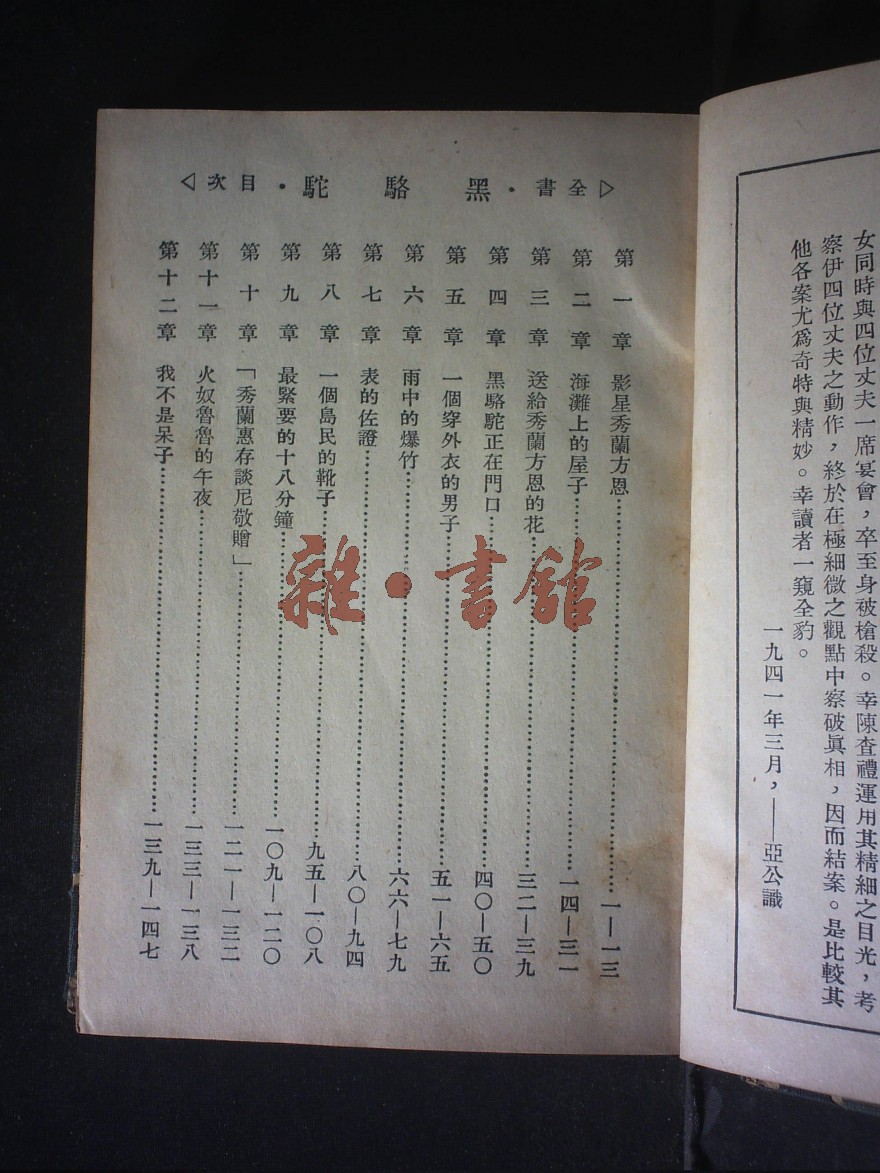 女同時與四位丈夫一席宴會，卒至身被槍殺。幸陳查禮運用其精細之目光，考
察伊四位丈夫之動作，終於在極細微之觀點中察破眞相，因而結案。是比較其
他各案尤爲奇特與精妙。幸讀者一窺全豹。
一九四一年三月，——亞公識
▷全書·黑駱駝·目次◁
第一章 影星秀蘭方恩……一—一三
第二章 海灘上的屋子……一四—三一
第三章 送給秀蘭方恩的花……三二—三九
第四章 黑駱駝正在門口……四〇—五〇
第五章 一個穿外衣的男子……五一—六五
第六章 雨中的爆竹……六六—七九
第七章 表的佐證……八〇—九四
第八章 一個島民的靴子……九五—一〇八
第九章 最緊要的十八分鐘……一〇九—一二〇
第十章 「秀蘭惠存談尼敬贈」……一二一—一三二
第十一章 火奴魯魯的午夜……一三三—一三八
第十二章 我不是呆子……一三九—一四七
雜·書館